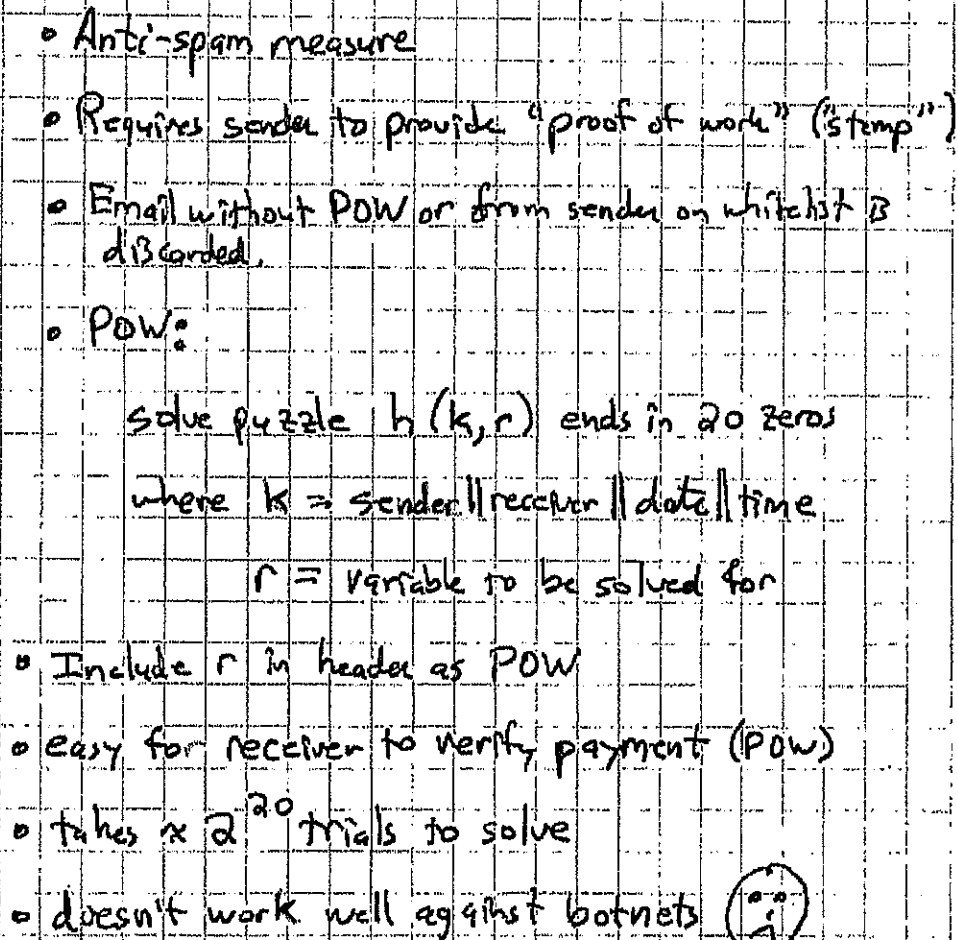 • Anti-spam measure
• Requires sender to provide "proof of work" ("stamp")
• Email without POW or from sender on whitelist is
discarded.
• POW:
solve puzzle h(k,r) ends in 20 zeros
where k = sender||receiver||date||time
r = variable to be solved for
• Include r in header as POW
• easy for receiver to verify payment (POW)
• takes ≈ 2^20 trials to solve
• doesn't work well against botnets